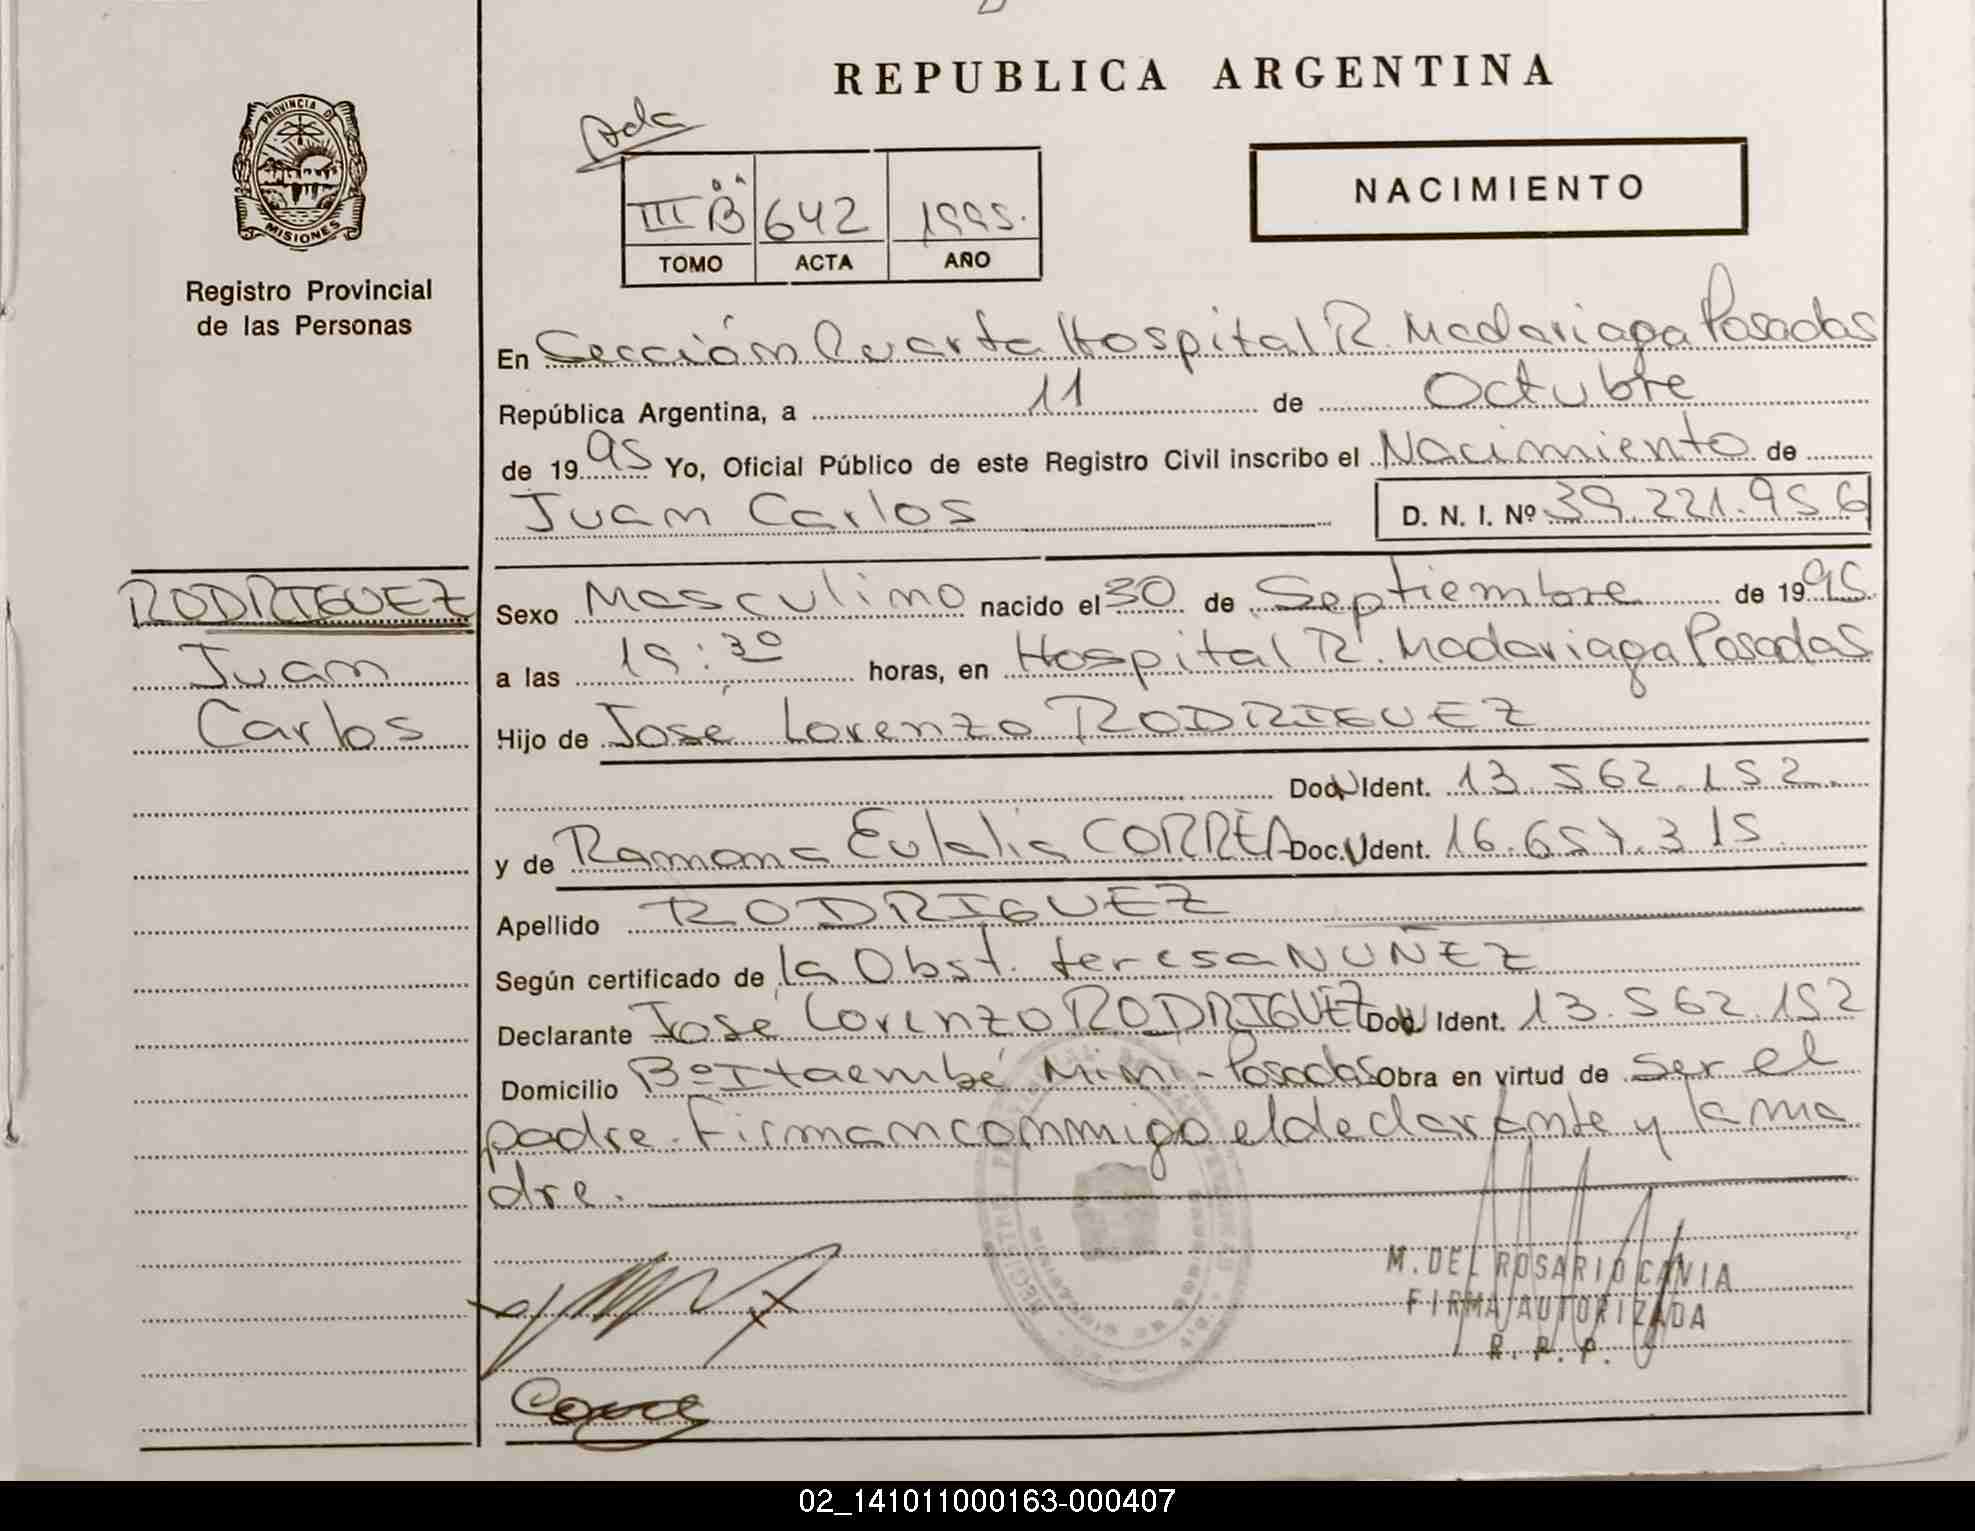 REPUBLICA ARGENTINA
PROVINCIA DE
MISIONES
Registro Provincial
de las Personas
III "B" 642 1995.
TOMO ACTA AÑO
NACIMIENTO
En Sección Cuarta Hospital R. Madariaga Posadas
República Argentina, a 11 de Octubre
de 1995 Yo, Oficial Público de este Registro Civil inscribo el Nacimiento de
Juan Carlos D. N. I. Nº 39.221.956
RODRIGUEZ
Juan
Carlos
Sexo Masculino nacido el 30 de Septiembre de 1995.
a las horas, en Hospital R. Madariaga Posadas
Hijo de José Lorenzo RODRIGUEZ
Doc. Ident. 13.562.152.
y de Ramona Eulalia CORREA Doc. Ident. 16.657.315
Apellido RODRIGUEZ
Según certificado de la Obst. teresa NUÑEZ
Declarante José Lorenzo RODRIGUEZ Doc. Ident. 13.562.152
Domicilio Bº Itaembé Miní - Posadas Obra en virtud de ser el
padre. Firman conmigo el declarante y la ma
dre.
M. DEL ROSARIO CAVIA
FIRMA AUTORIZADA
R. P. P.
02_141011000163-000407